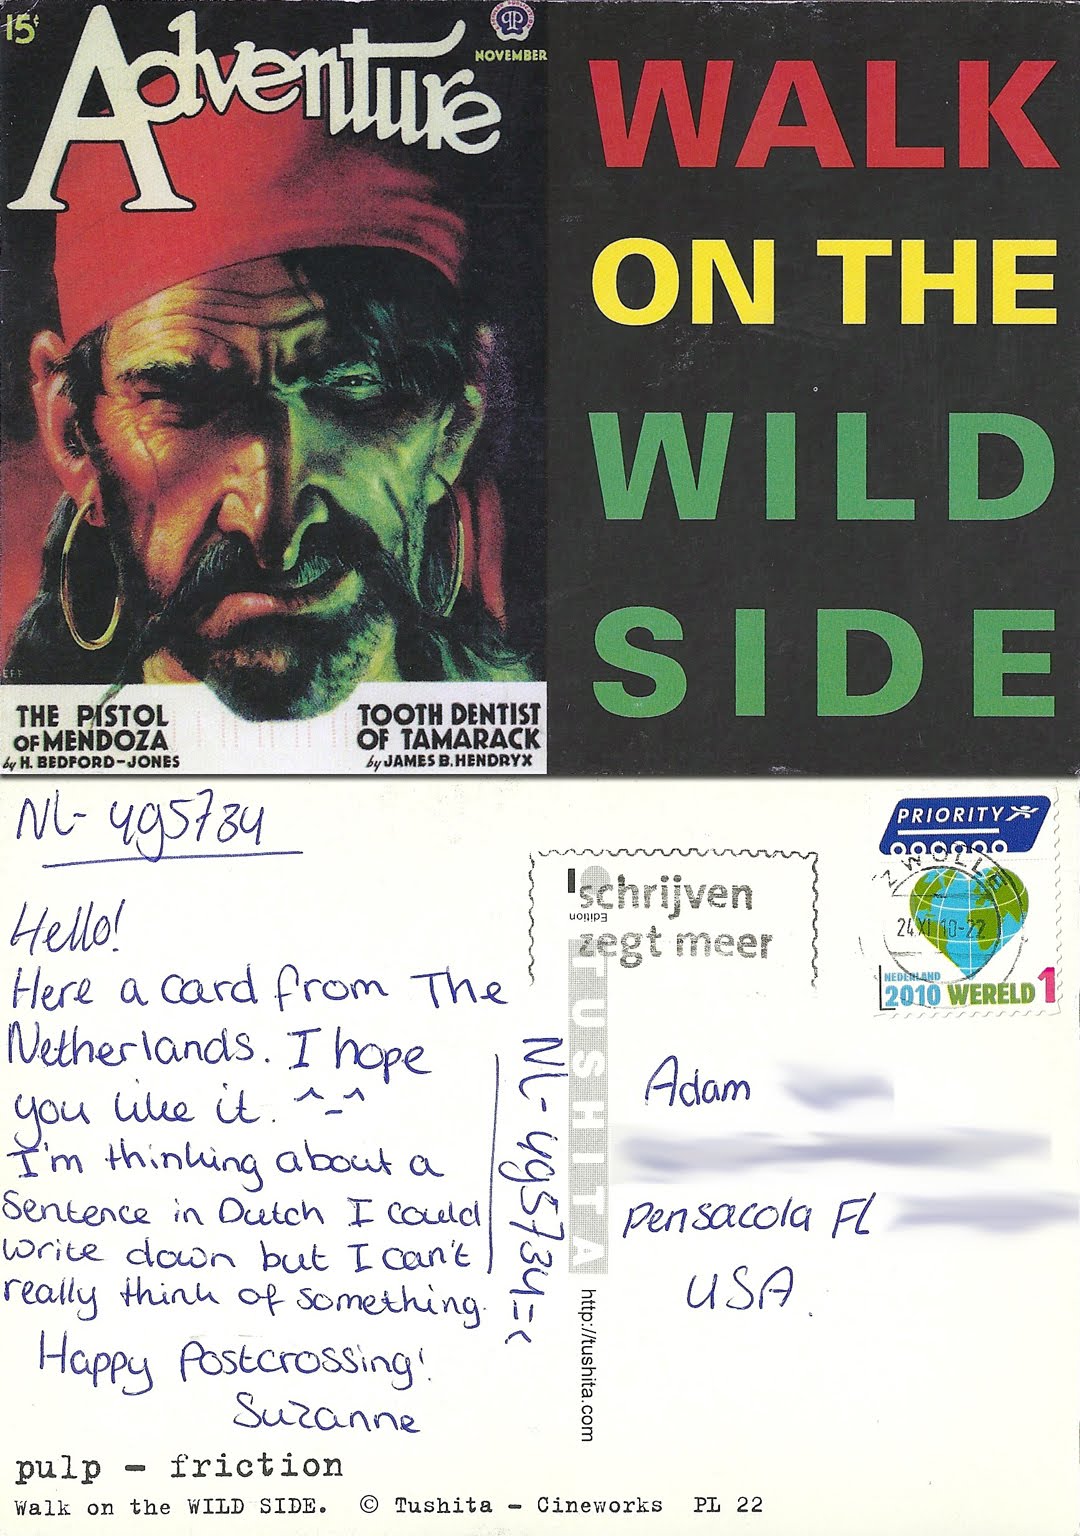 15¢
Adventure
NOVEMBER
WALK
ON THE
WILD
SIDE
THE PISTOL
OF MENDOZA
by H. BEDFORD-JONES
TOOTH DENTIST
OF TAMARACK
by JAMES B. HENDRYX
NL- 495734
Hello!
Here a card from The
Netherlands. I hope
you like it. ^_^
I'm thinking about a
sentence in Dutch I could
write down but I can't
really think of something.
Happy Postcrossing!
Suzanne
pulp - friction
Walk on the WILD SIDE. © Tushita - Cineworks PL 22
schrijven
zegt meer
Edition
TUSHITA
http://tushita.com
NL- 495734
PRIORITY
ZWOLLE
24.XI 10-22
NEDERLAND
2010 WERELD 1
Adam
Pensacola FL
USA.